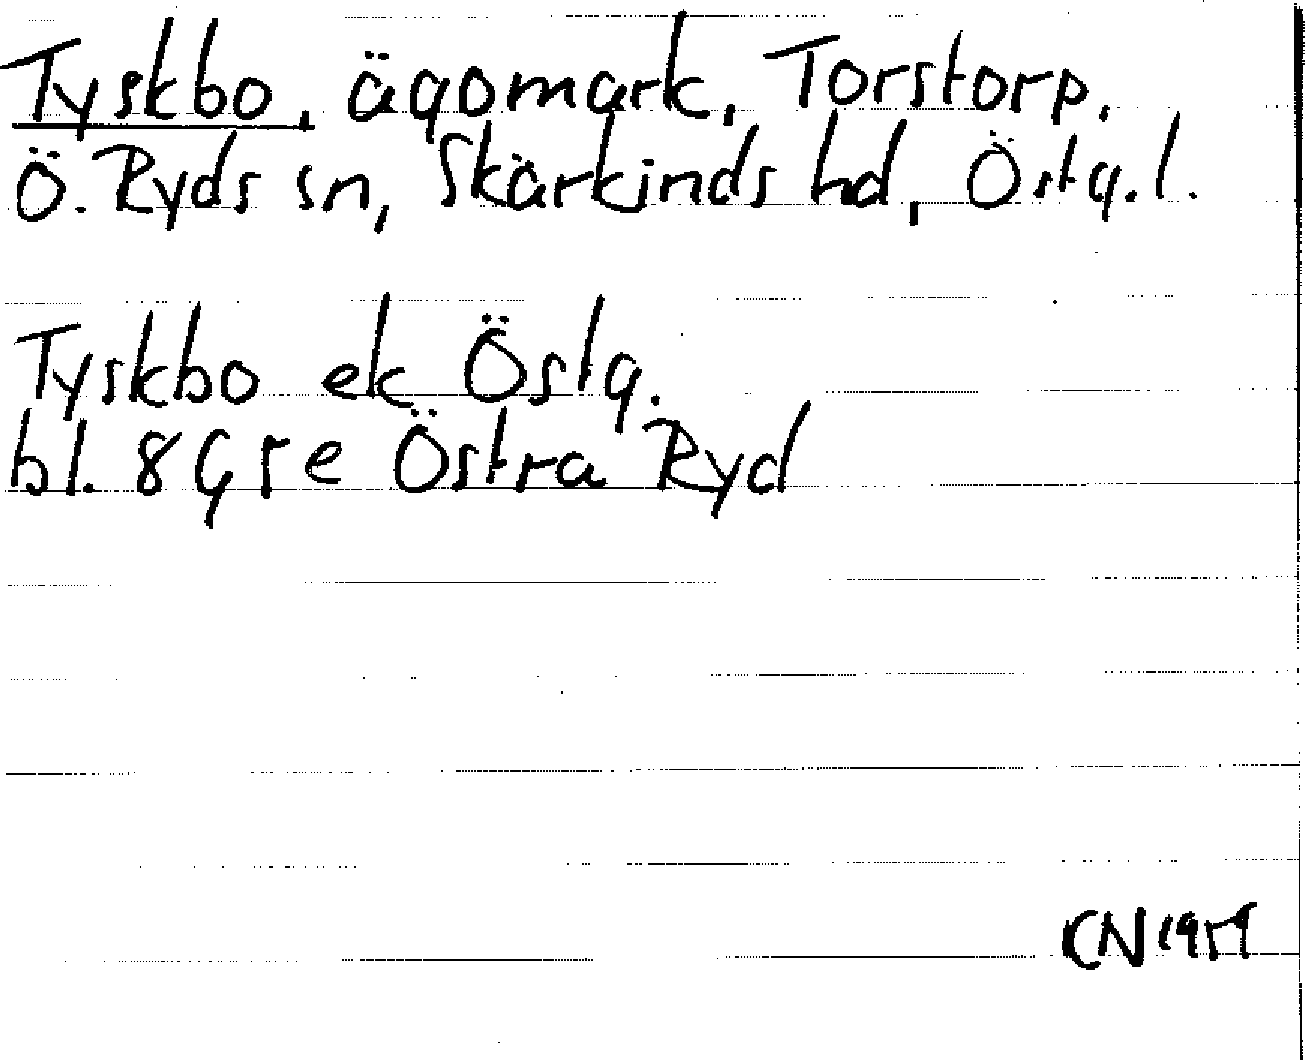 Tyskbo, ägomark, Torstorp,
Ö. Ryds sn, Skärkinds hd, Östg. l.
Tyskbo ek Östg.
bl. 8G5e Östra Ryd
CN 1959